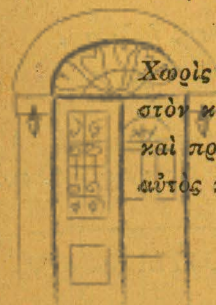 Χωρὶς
στὸν κ
καὶ πρ
αὐτὸς